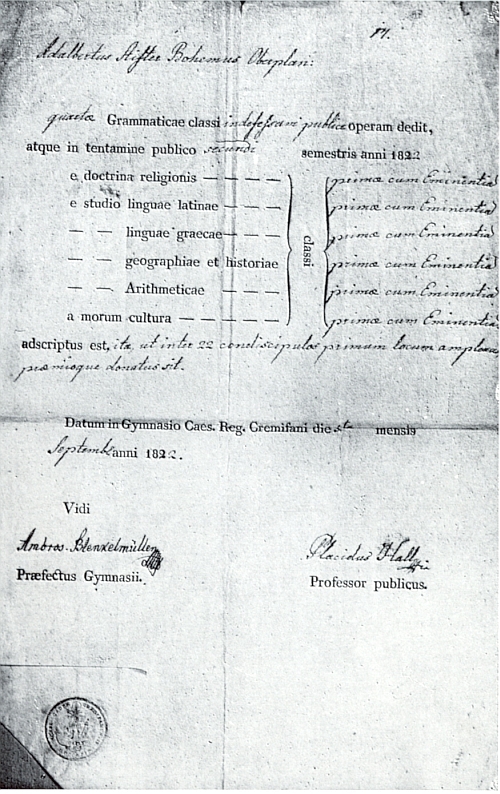 Adalbertus Stifter Bohemus Oberplan:
quartae Grammaticae classi indefessam publice operam dedit,
atque in tentamine publico secundi semestris anni 1822
e doctrina religionis — — — — primæ cum Eminentiâ
e studio linguae latinae — — — primæ cum Eminentiâ
— — linguae graecae — — — primæ cum Eminentiâ
— — geographiae et historiae primæ cum Eminentiâ
— — Arithmeticae — — — primæ cum Eminentiâ
a morum cultura — — — — — primæ cum Eminentiâ
classi
adscriptus est, ita, ut inter 22 condiscipulos primum locum
præmioque donatus sit.
Datum in Gymnasio Caes. Reg. Cremifani die mensis
Septemb. anni 1822.
Vidi
Ambros. Placidus Hall
Præfectus Gymnasii. Professor publicus.